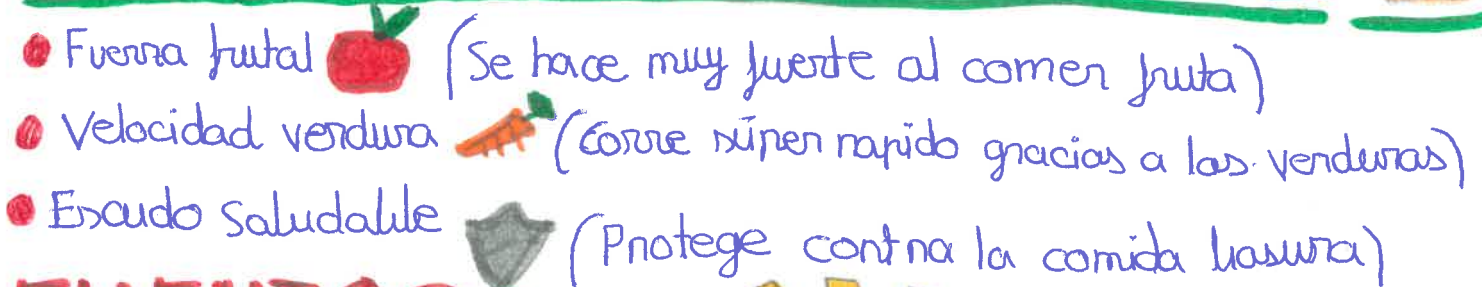 Fuerza frutal (Se hace muy fuerte al comer fruta)
Velocidad verdura (corre súper rapido gracias a las verduras)
Escudo Saludable (Protege contra la comida basura)